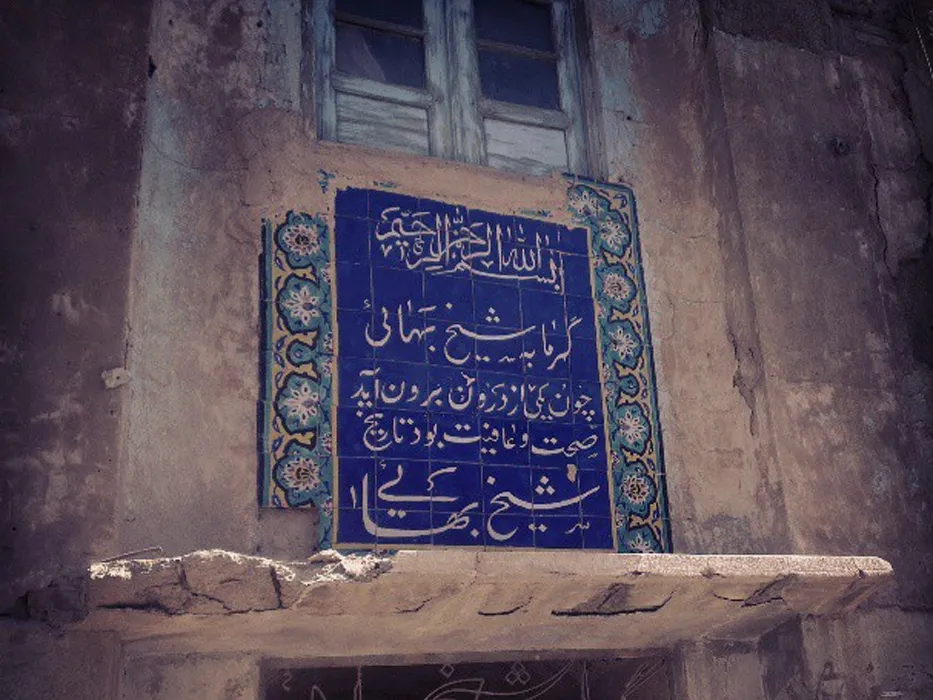 بسم الله الرحمن الرحیم
گرمابه شیخ بهائی
چون یکی از درون برون آید
صحت و عافیت بود تاریخ
شیخ بهایی